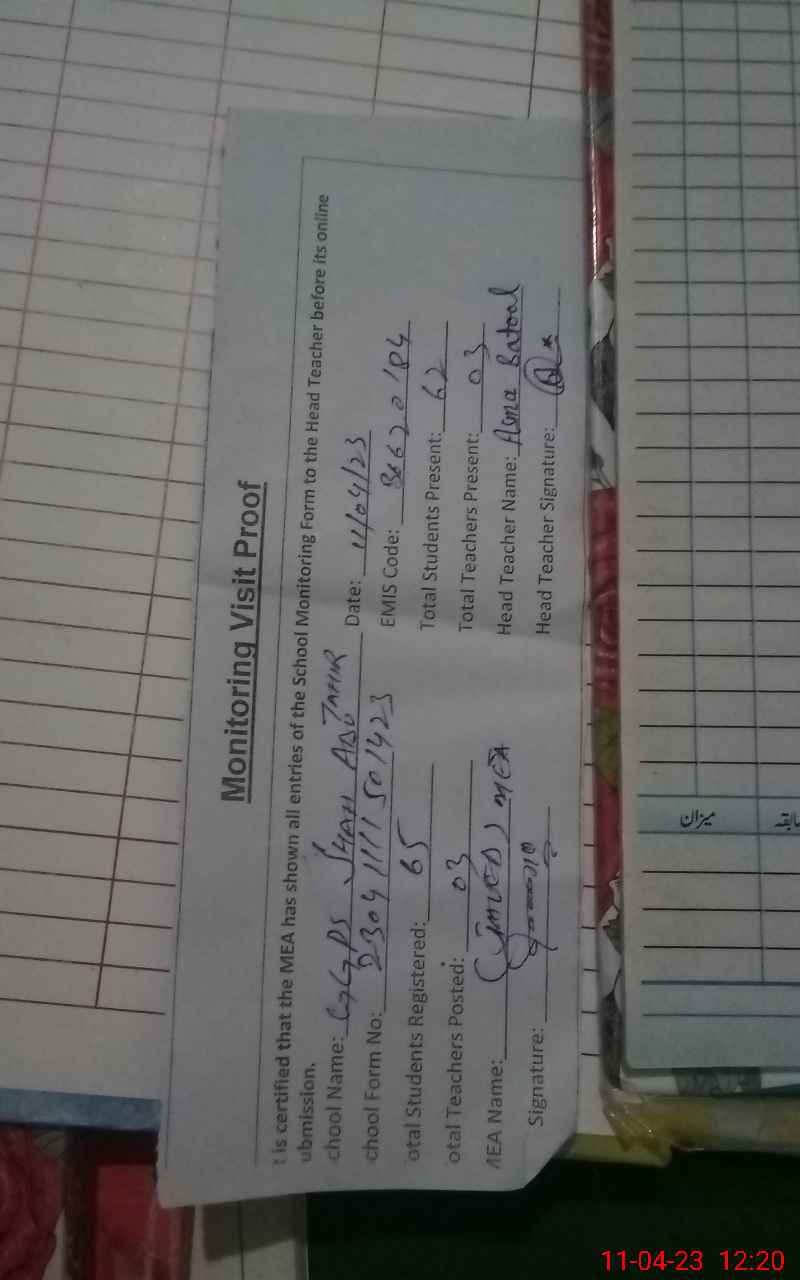 Monitoring Visit Proof
t is certified that the MEA has shown all entries of the School Monitoring Form to the Head Teacher before its online
ubmission.
chool Name: GGPS SHAH ABU TAHIR Date: 11/04/23
chool Form No: 23041111501423 EMIS Code: 36620184
otal Students Registered: 65 Total Students Present: 62
otal Teachers Posted: 03 Total Teachers Present: 03
MEA Name: (JAVED) MEA Head Teacher Name: Asma Batool
Signature: Head Teacher Signature:
میزان
سابقہ
11-04-23 12:20